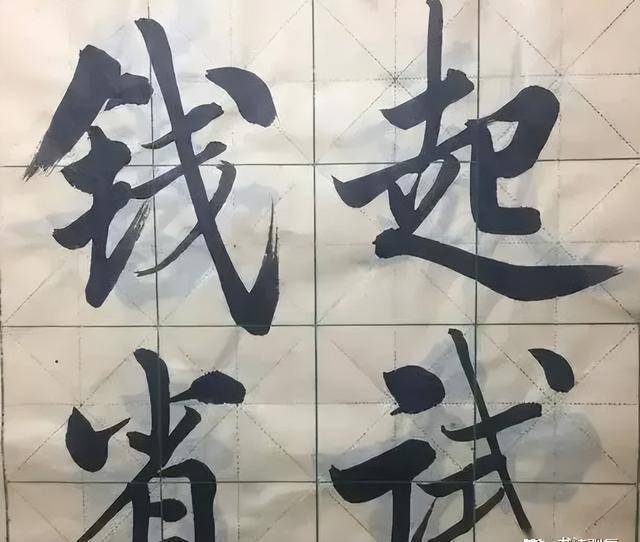 钱起
省试